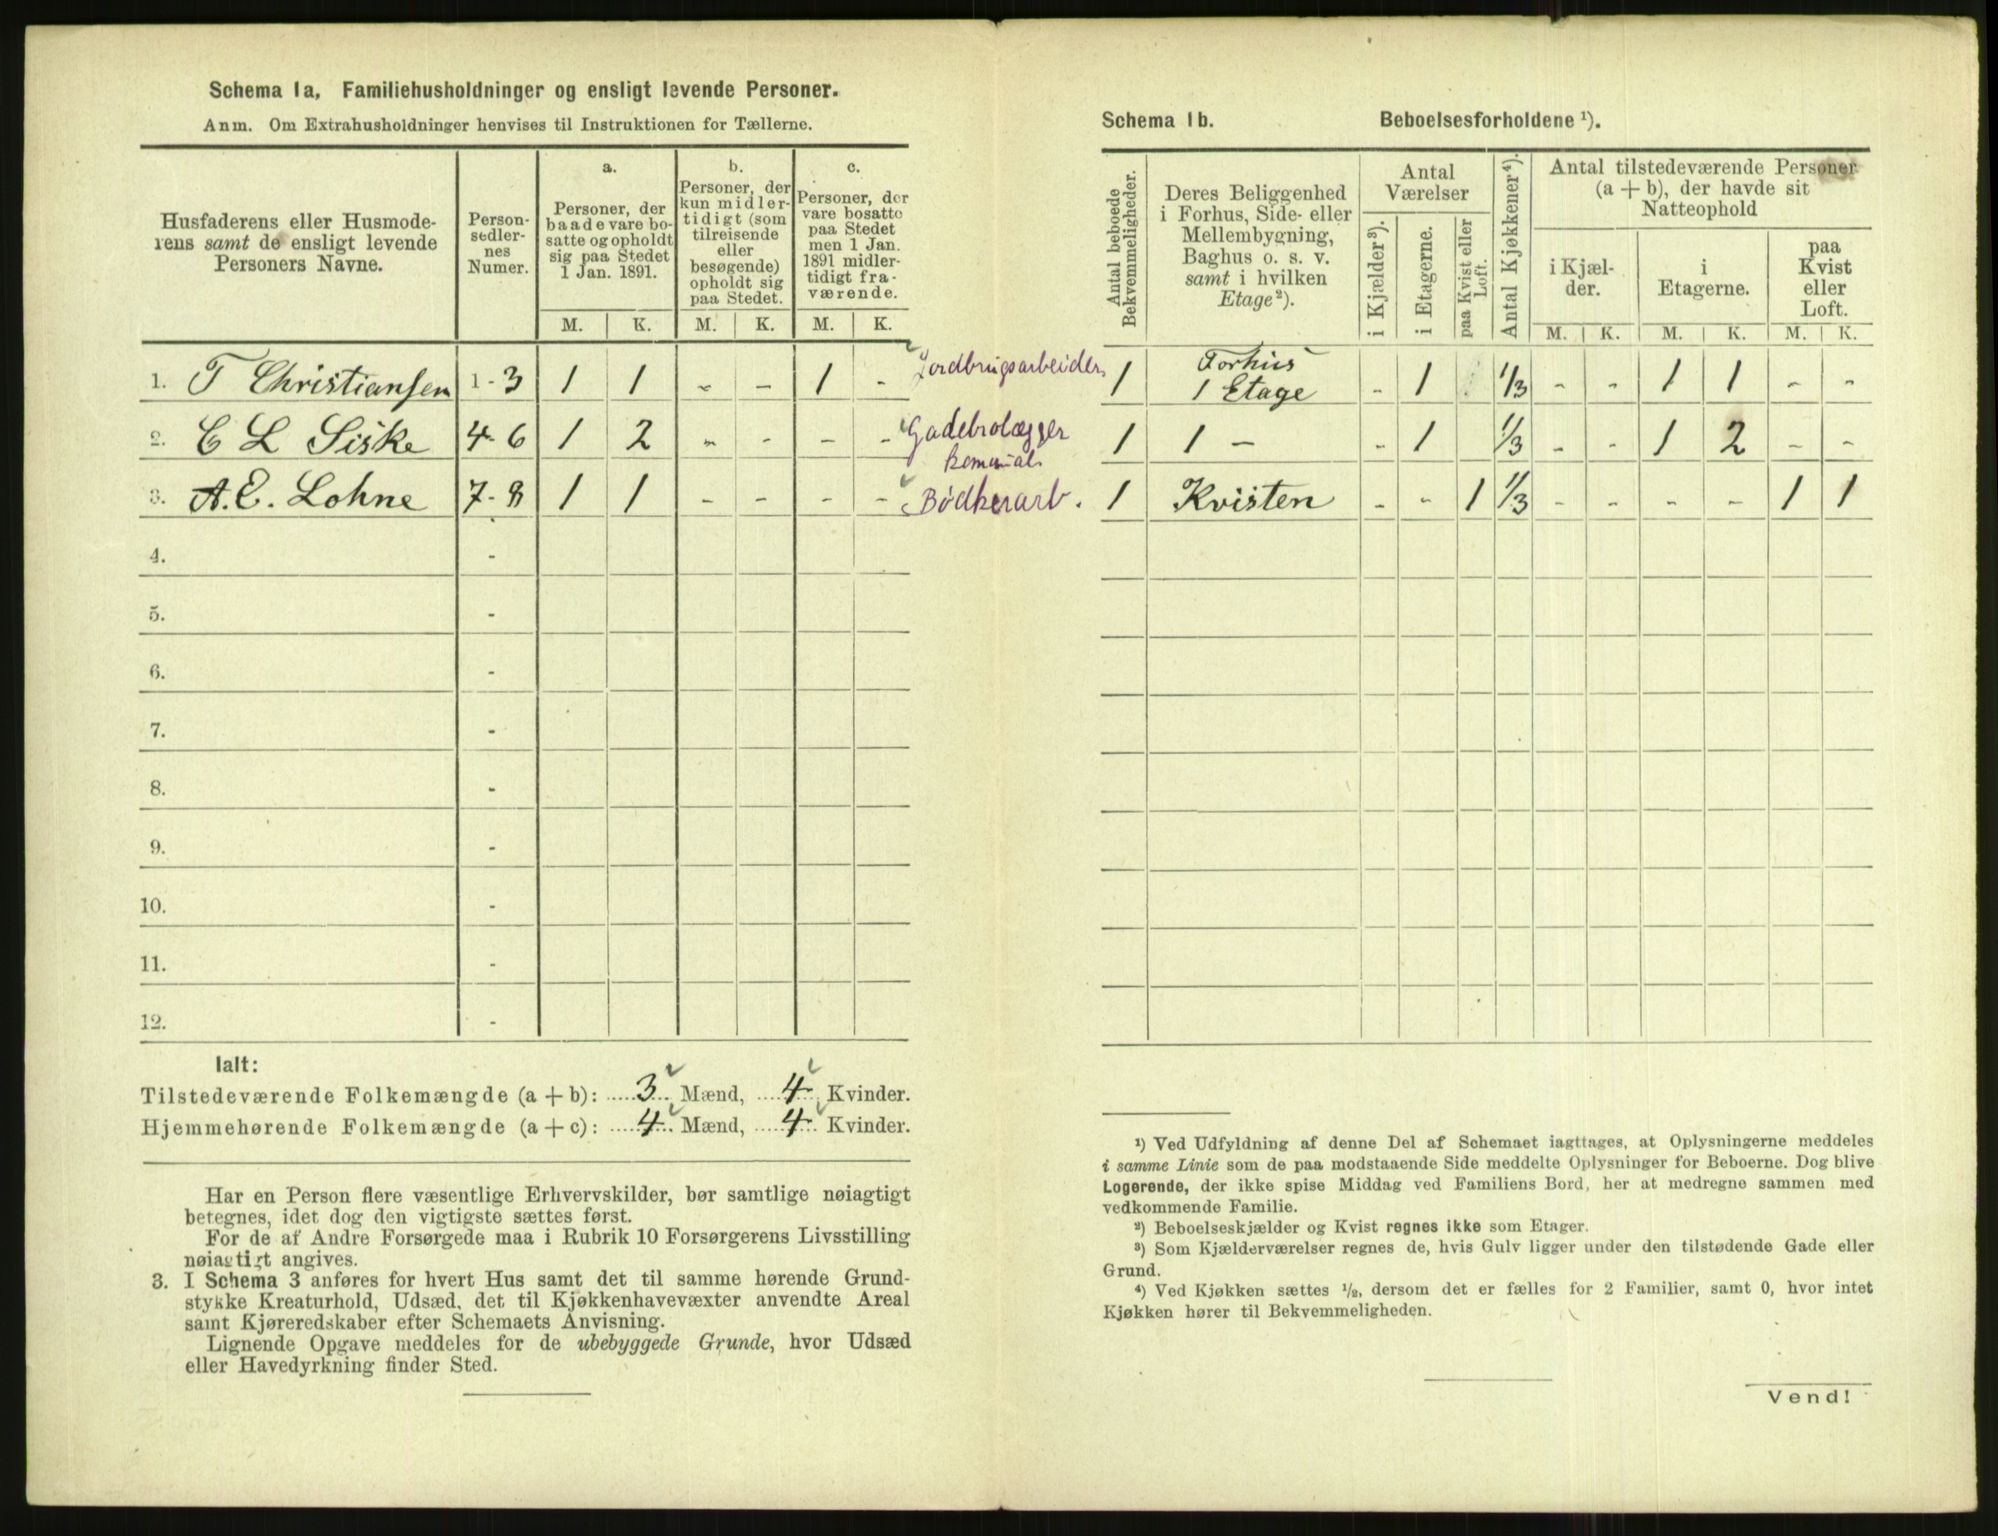 Schema 1a, Familiehusholdninger og ensligt levende Personer.
Anm. Om Extrahusholdninger henvises til Instruktionen for Tællerne.
Husfaderens eller Husmode-
rens samt de ensligt levende
Personers Navne.
Person-
sedler-
nes
Numer.
a.
Personer, der
baade vare bo-
satte og opholdt
sig paa Stedet
1 Jan. 1891.
b.
Personer, der
kun midler-
tidigt (som
tilreisende
eller
besøgende)
opholdt sig
paa Stedet.
c.
Personer, der
vare bosatte
paa Stedet
men 1 Jan.
1891 midler-
tidigt fra-
værende.
M. K. M. K. M. K.
1. T Christiansen 1-3 1 1 - - 1 - Jordbrugsarbeider
2. C L Siske 4-6 1 2 - - - - Gadebrolægger
komunal.
3. A. E. Lohne 7-8 1 1 - - - - Bødkerarb.
4. -
5. -
6. -
7. -
8. -
9. -
10. -
11. -
12. -
Ialt:
Tilstedeværende Folkemængde (a + b): 3 Mænd, 4 Kvinder.
Hjemmehørende Folkemængde (a + c): 4 Mænd, 4 Kvinder.
Har en Person flere væsentlige Erhvervskilder, bør samtlige nøiagtigt
betegnes, idet dog den vigtigste sættes først.
For de af Andre Forsørgede maa i Rubrik 10 Forsørgerens Livsstilling
nøiagtigt angives.
3. I Schema 3 anføres for hvert Hus samt det til samme hørende Grund-
stykke Kreaturhold, Udsæd, det til Kjøkkenhavevæxter anvendte Areal
samt Kjøreredskaber efter Schemaets Anvisning.
Lignende Opgave meddeles for de ubebyggede Grunde, hvor Udsæd
eller Havedyrkning finder Sted.
Schema 1b. Beboelsesforholdene ¹).
Antal beboede
Bekvemmeligheder.
Deres Beliggenhed
i Forhus, Side- eller
Mellembygning,
Baghus o. s. v.
samt i hvilken
Etage²).
Antal
Værelser
i Kjælder³).
i Etagerne.
paa Kvist eller
Loft.
Antal Kjøkkener⁴).
Antal tilstedeværende Personer
(a + b), der havde sit
Natteophold
i Kjæl-
der.
i
Etagerne.
paa
Kvist
eller
Loft.
M. K. M. K. M. K.
1 Forhus
1 Etage - 1 1/3 - - 1 1 - -
1 1 - - 1 1/3 - - 1 2 - -
1 Kvisten - - 1 1/3 - - - - 1 1
¹) Ved Udfyldning af denne Del af Schemaet iagttages, at Oplysningerne meddeles
i samme Linie som de paa modstaaende Side meddelte Oplysninger for Beboerne. Dog blive
Logerende, der ikke spise Middag ved Familiens Bord, her at medregne sammen med
vedkommende Familie.
²) Beboelseskjælder og Kvist regnes ikke som Etager.
³) Som Kjælderværelser regnes de, hvis Gulv ligger under den tilstødende Gade eller
Grund.
⁴) Ved Kjøkken sættes ½, dersom det er fælles for 2 Familier, samt 0, hvor intet
Kjøkken hører til Bekvemmeligheden.
Vend!